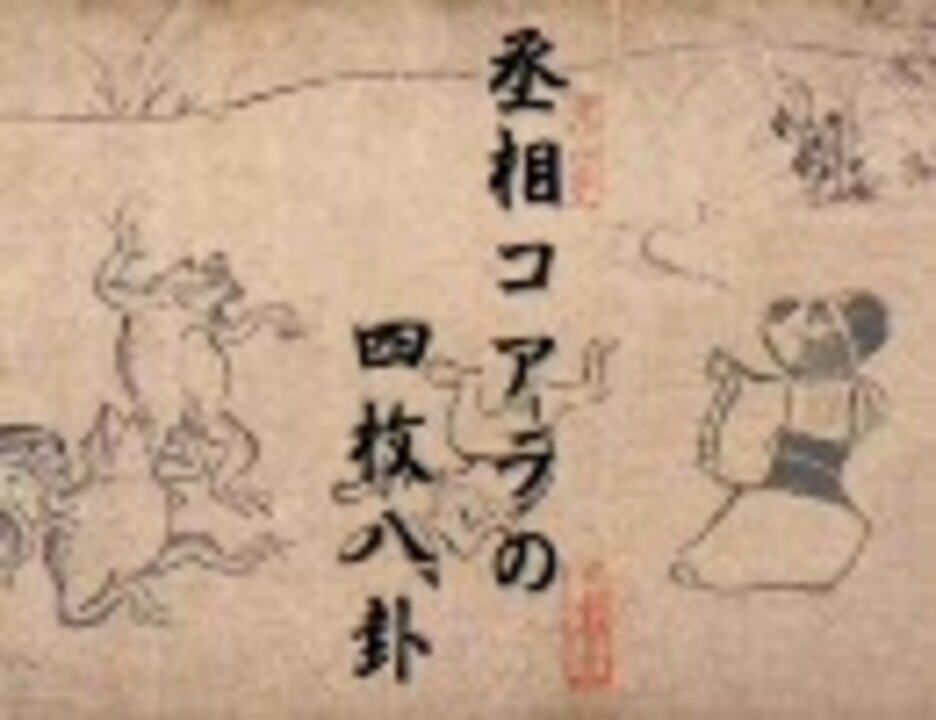 丞相コアラの
四枚八卦